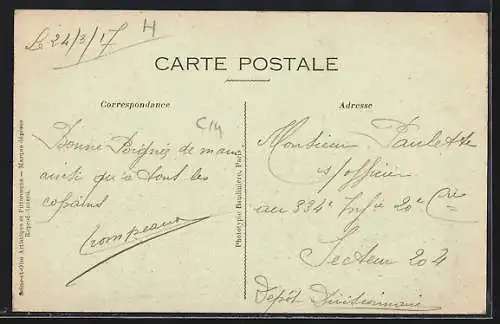 Le 24/3/17
H
CARTE POSTALE
Correspondance
Adresse
C14
Bonne Poignée de main
ainsi qu'à tout les
copains
Trompeau
Monsieur Paulette
s/officier
au 334e Infie 20e Cie
Secteur 204
Dépôt Divisionnaire
Seine-et-Oise Artistique et Pittoresque — Marque déposée
Reprod. interd.
Phototypie Baudinière, Paris